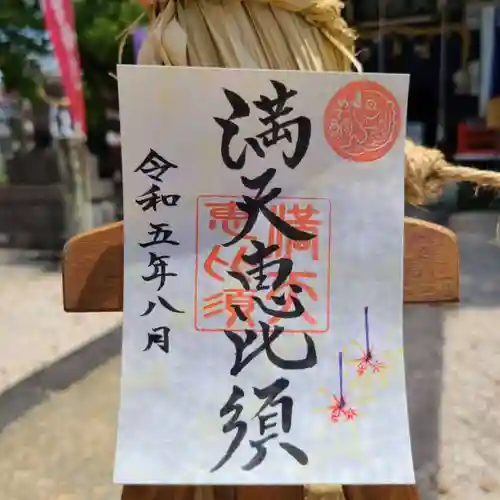 満天恵比須
令和五年八月
満天
恵比須